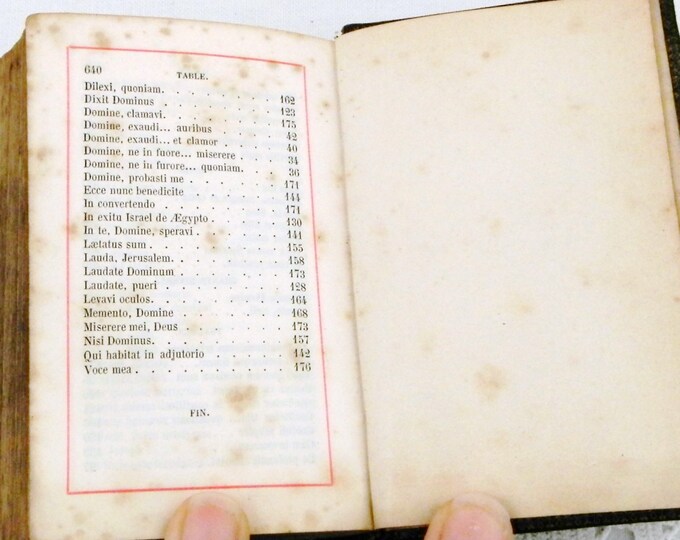 640 TABLE.
Dilexi, quoniam. . . . . . . . . 162
Dixit Dominus . . . . . . . . . 123
Domine, clamavi. . . . . . . . . 175
Domine, exaudi... auribus . . . . . 42
Domine, exaudi... et clamor . . . . 40
Domine, ne in fuore... miserere . . . 34
Domine, ne in furore... quoniam. . . . 36
Domine, probasti me . . . . . . . 171
Ecce nunc benedicite . . . . . . . 144
In convertendo . . . . . . . . . 171
In exitu Israel de Ægypto . . . . . 130
In te, Domine, speravi . . . . . . 141
Lætatus sum . . . . . . . . . . 155
Lauda, Jerusalem. . . . . . . . . 158
Laudate Dominum . . . . . . . . 173
Laudate, pueri . . . . . . . . . 128
Levavi oculos. . . . . . . . . . 164
Memento, Domine . . . . . . . . 168
Miserere mei, Deus . . . . . . . 173
Nisi Dominus. . . . . . . . . . 157
Qui habitat in adjutorio . . . . . 142
Voce mea . . . . . . . . . . . 176
FIN.